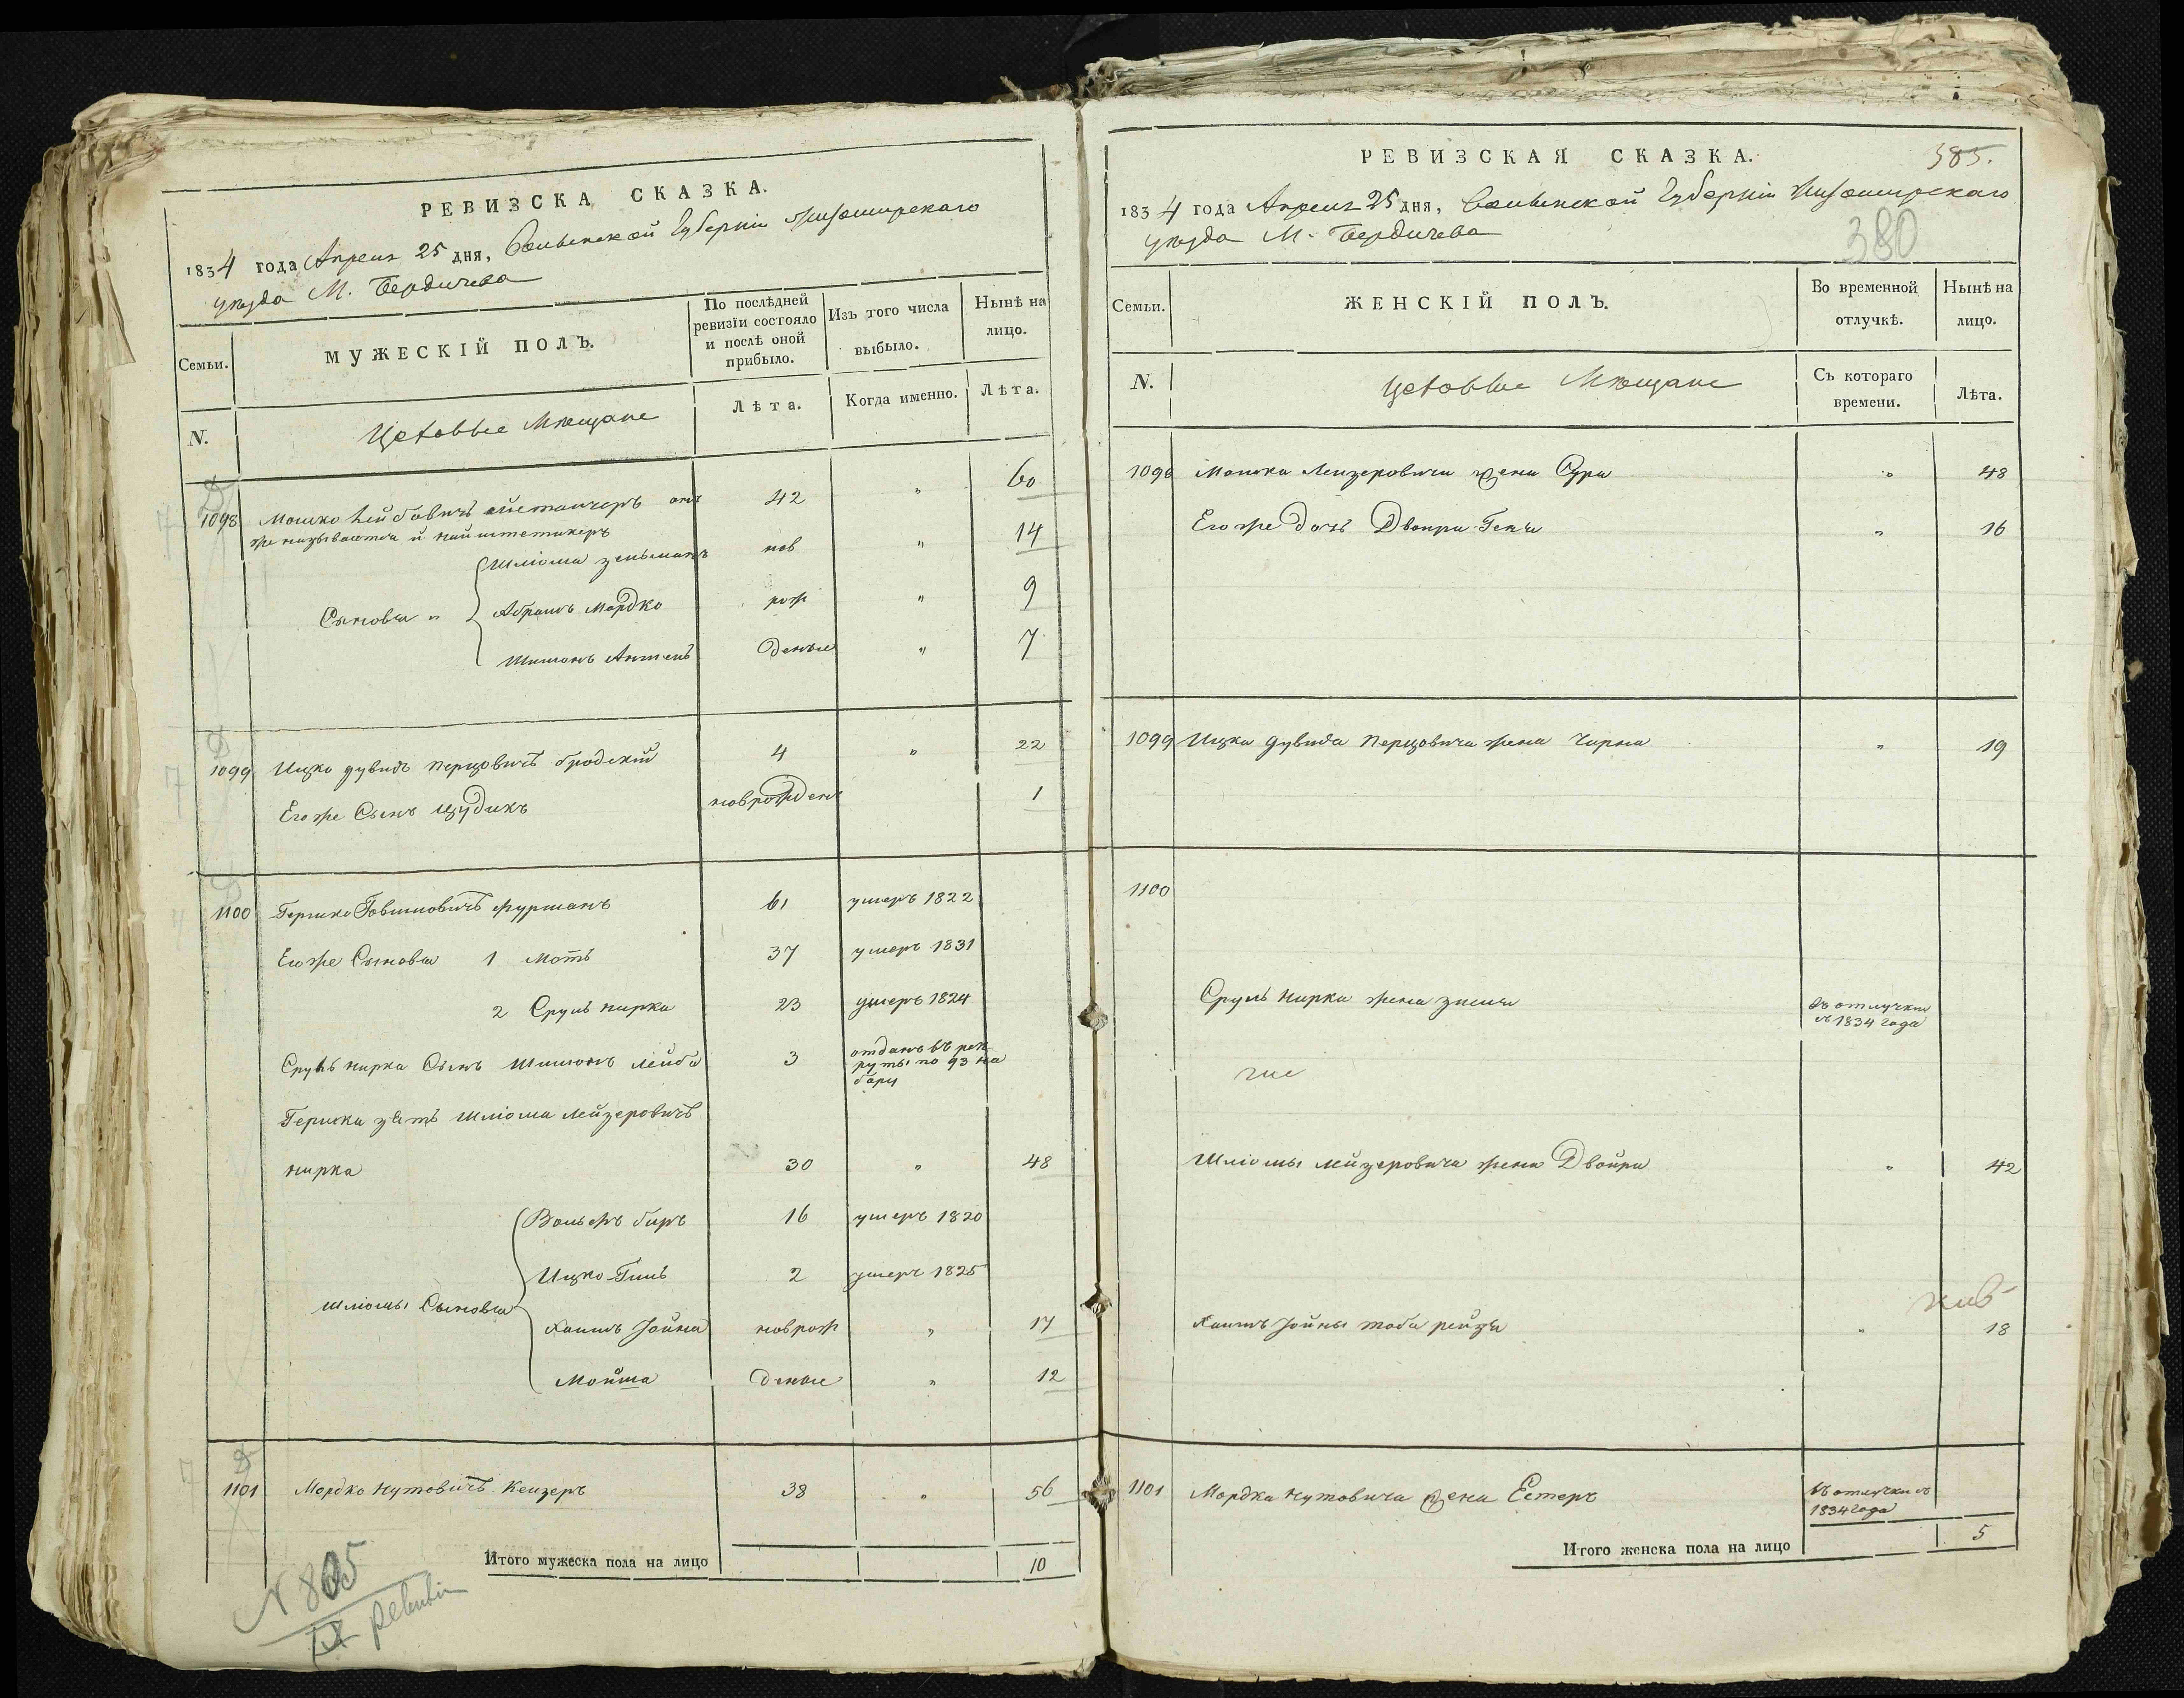 РЕВИЗСКА СКАЗКА.
1834 года Апреля 25 дня, Волынской Губерніи Житомирскаго
уезда М. Бердичева
Семьи.
МУЖЕСКІЙ ПОЛЪ.
По послѣдней
ревизіи состояло
и послѣ оной
прибыло.
Изъ того числа
выбыло.
Нынѣ на
лицо.
N.
Цеховые Мещане
Лѣта.
Когда именно.
Лѣта.
1098 Мошко Лейбовичъ онъ 42 " 60
же называется и
Шліома Зельманъ нов " 14
Сыновья " Абрамъ Мордко рож " 9
Шимонъ Аншель деные " 7
1099 Ицко Дувидъ Перцовичъ Бродскій 4 " 22
Его же Сынъ Иудикъ новрожден 1
1100 Гершко Фурманъ 61 умеръ 1822
Его же Сыновья 1 Моть 37 умеръ 1831
2 Сруль Нирка 23 умеръ 1824
Сруль Нирка Сынъ Шимонъ Лейба 3 отданъ въ рек
руты по 93 на
бору
Гершка зять Шліома Лейзеровичъ
Нирка 30 " 48
Вольфъ Беръ 16 умеръ 1820
Ицко 2 умеръ 1825
Шліомы Сыновья
Хаимъ Іойна новрож " 17
Мойша деные " 12
1101 Мордко Нутовичъ Кейзеръ 38 " 56
Итого мужеска пола на лицо 10
N 805
IX
РЕВИЗСКАЯ СКАЗКА.
385.
1834 года Апреля 25 дня, Волынской Губерніи Житомирскаго
уезда М. Бердичева
380
Семьи.
ЖЕНСКІЙ ПОЛЪ.
Во временной
отлучкѣ.
Нынѣ на
лицо.
N.
Цеховые Мещане
Съ котораго
времени.
Лѣта.
1098 Мошка жена Сура " 48
Его же дочь Двойра " 16
1099 Ицка Дувида Перцовича жена Чарна " 19
1100
Сруль Нирка жена въ отлучки
съ 1834 года
Шліомы Лейзеровича жена Двойра " 42
Хаимъ Іойны Тоба Рейзя " 18
1101 Мордка Нутовича жена Естеръ въ отлучки съ
1834 года
Итого женска пола на лицо 5